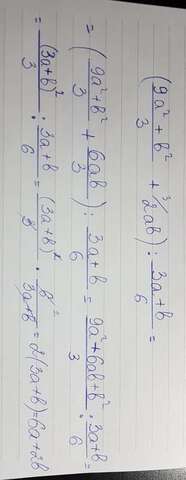 ((9a²+b²)/3 + ³⁄2ab) : (3a+b)/6 =
= ((9a²+b²)/3 + 6ab/3) : (3a+b)/6 = (9a²+6ab+b²)/3 : (3a+b)/6 =
= (3a+b)²/3 : (3a+b)/6 = (3a+b)²/3 · 6/(3a+b) = 2(3a+b)=6a+2b